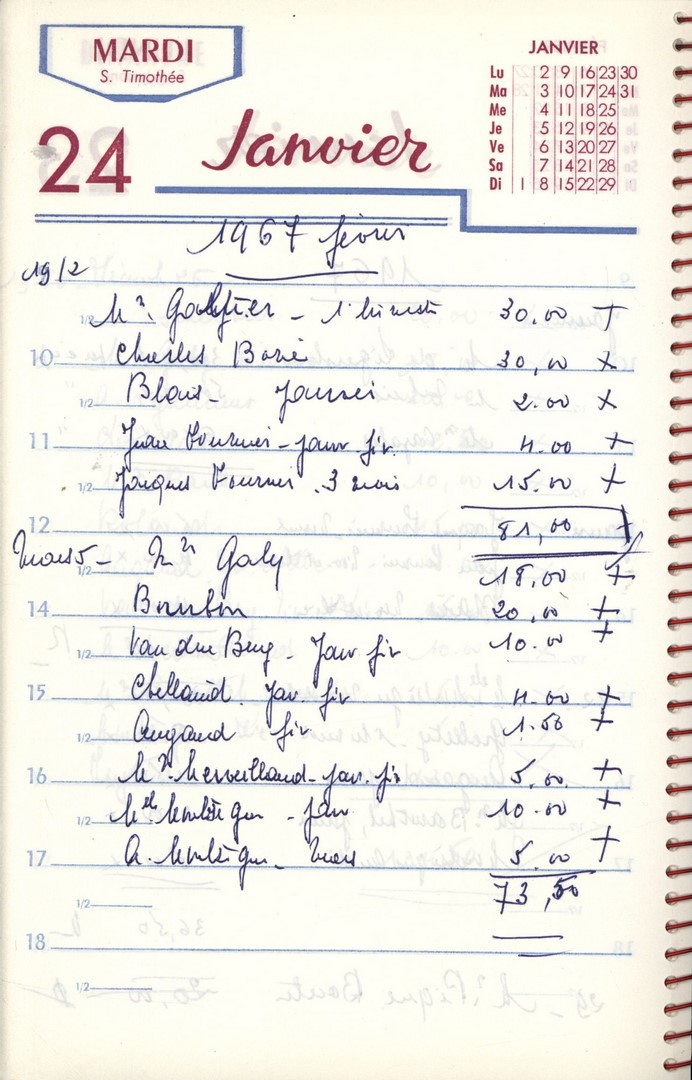 MARDI
S. Timothée
24 Janvier
JANVIER
Lu 2 9 16 23 30
Ma 3 10 17 24 31
Me 4 11 18 25
Je 5 12 19 26
Ve 6 13 20 27
Sa 7 14 21 28
Di 1 8 15 22 29
1967 février
19/2
1/2 Mr. 30.00 +
10 Charles 30,00 +
1/2 Blaui- Janvier 2.00 +
11 Jean Fournier - janv fév. 4.00 +
1/2 Jacques Fournier . 3 mois 15.00 +
12 81,00
Mars 5 - Mr Galy 18,00 +
1/2
14 Bourbon 20,00 +
1/2 Van den Berg - Janv fév 10.00 +
15 Chellaud. Jan. fév 4.00 +
1/2 Augaud fév 1.50 +
16 Mr Merveilland - jan. fév 5,00. +
1/2 Melle - jan 10.00 +
17 A. - Mars 5.00 +
73,50
1/2
18
1/2